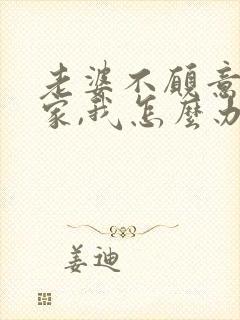 老婆不願意
家,我怎麼办
姜迪